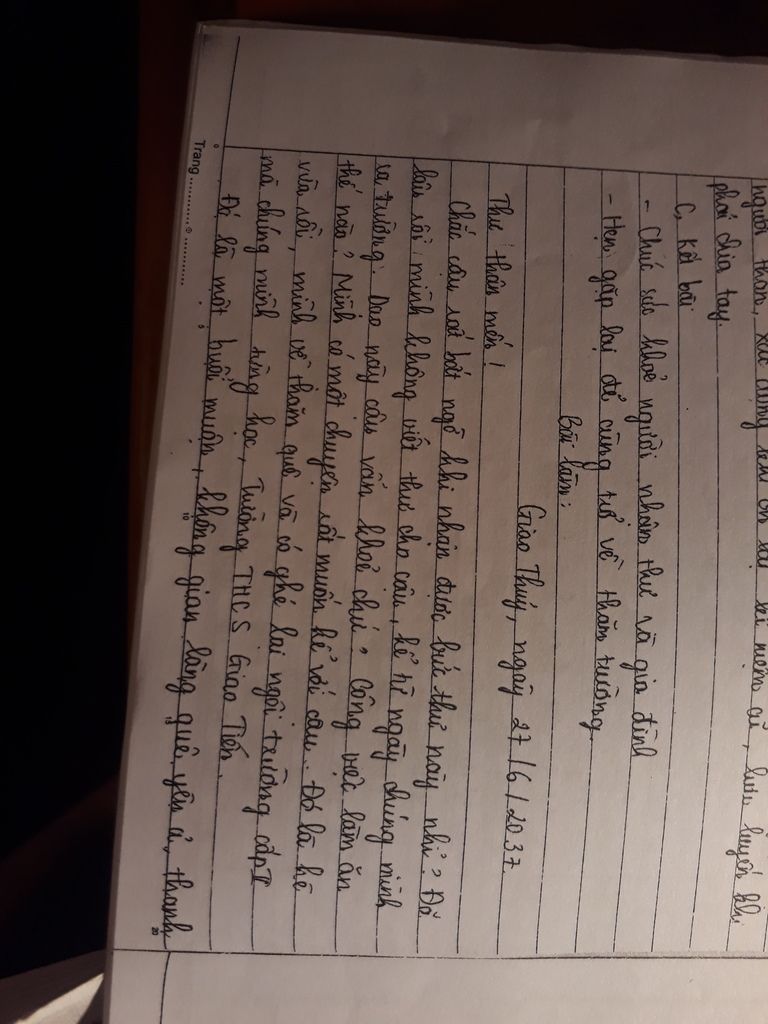 người thân, xúc động xem
phải chia tay.
C, Kết bài
- Chúc sức khoẻ người nhận thư và gia đình
- Hẹn gặp lại để cùng trở về thăm trường.
Bài làm:
Giao Thuỷ, ngày 27/6/2037
Thư thân mến!
Chắc cậu rất bất ngờ khi nhận được bức thư này nhỉ? Đã
lâu rồi mình không viết thư cho cậu, kể từ ngày chúng mình
ra trường. Dạo này cậu vẫn khoẻ chứ? Công việc làm ăn
thế nào? Mình có một chuyện rất muốn kể với cậu. Đó là hè
vừa rồi, mình về thăm quê và có ghé lại ngôi trường cấp II
mà chúng mình từng học, Trường THCS Giao Tiến.
Đó là một buổi muộn, không gian làng quê yên ả, thanh
Trang
10
20